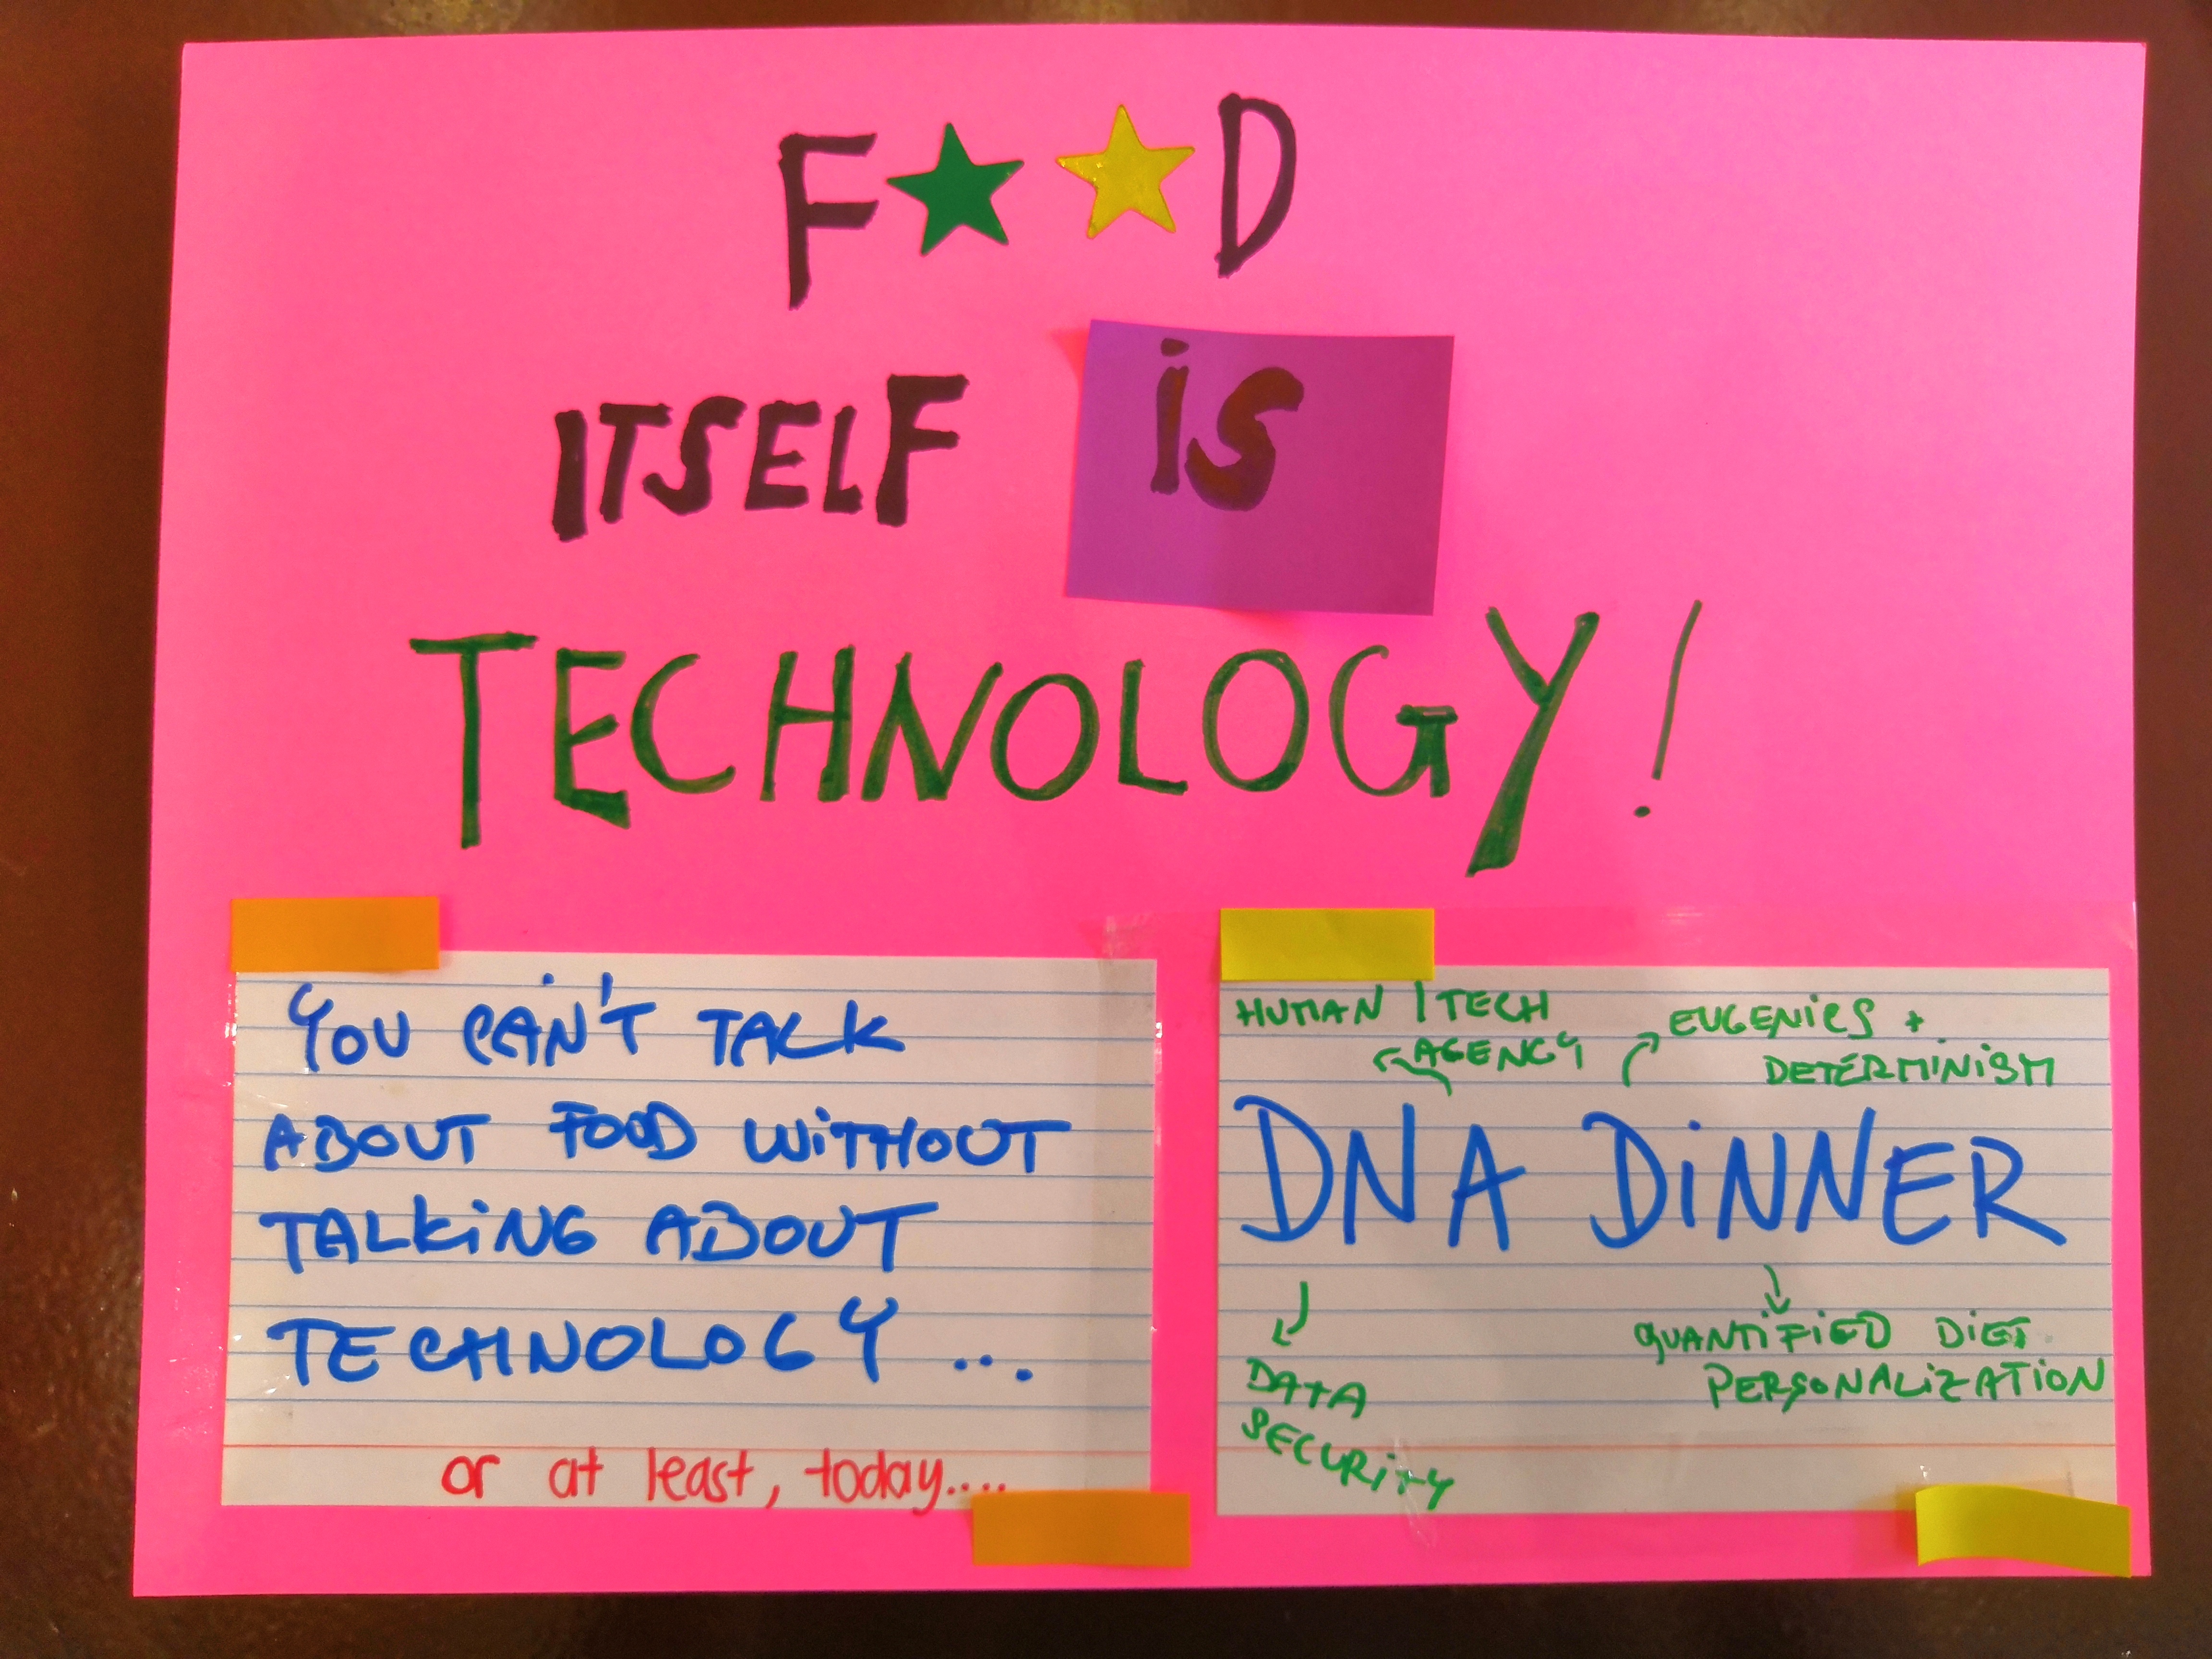 F★★D
ITSELF is
TECHNOLOGY!
YOU CAN'T TALK
ABOUT FOOD WITHOUT
TALKING ABOUT
TECHNOLOGY...
or at least, today....
HUMAN | TECH
AGENCY
EUGENICS +
DETERMINISM
DNA DINNER
DATA
SECURITY
QUANTIFIED DIET
PERSONALIZATION